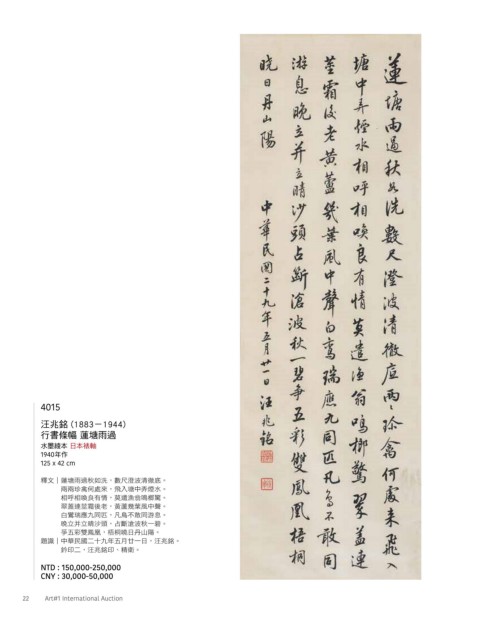 蓮塘雨過秋如洗數尺澄波清徹底兩兩珍禽何處來飛入
塘中弄煙水相呼相喚良有情莫遣漁翁鳴榔驚翠蓋連
莖霜後老黃蘆幾葉風中聲白鸞瑞應九同匹凡鳥不敢同
游息晚立并立晴沙頭占斷滄波秋一碧爭五彩雙鳳凰梧桐
曉日丹山陽
中華民國二十九年五月廿一日 汪兆銘
4015
汪兆銘(1883－1944)
行書條幅 蓮塘雨過
水墨綾本 日本裱軸
1940年作
125 x 42 cm
釋文｜蓮塘雨過秋如洗，數尺澄波清徹底。
兩兩珍禽何處來，飛入塘中弄煙水。
相呼相喚良有情，莫遣漁翁鳴榔驚。
翠蓋連莖霜後老，黃蘆幾葉風中聲。
白鸞瑞應九同匹，凡鳥不敢同游息。
曉立并立晴沙頭，占斷滄波秋一碧。
爭五彩雙鳳凰，梧桐曉日丹山陽。
題識｜中華民國二十九年五月廿一日，汪兆銘。
鈐印二，汪兆銘印、精衛。
NTD : 150,000-250,000
CNY : 30,000-50,000
22 Art#1 International Auction